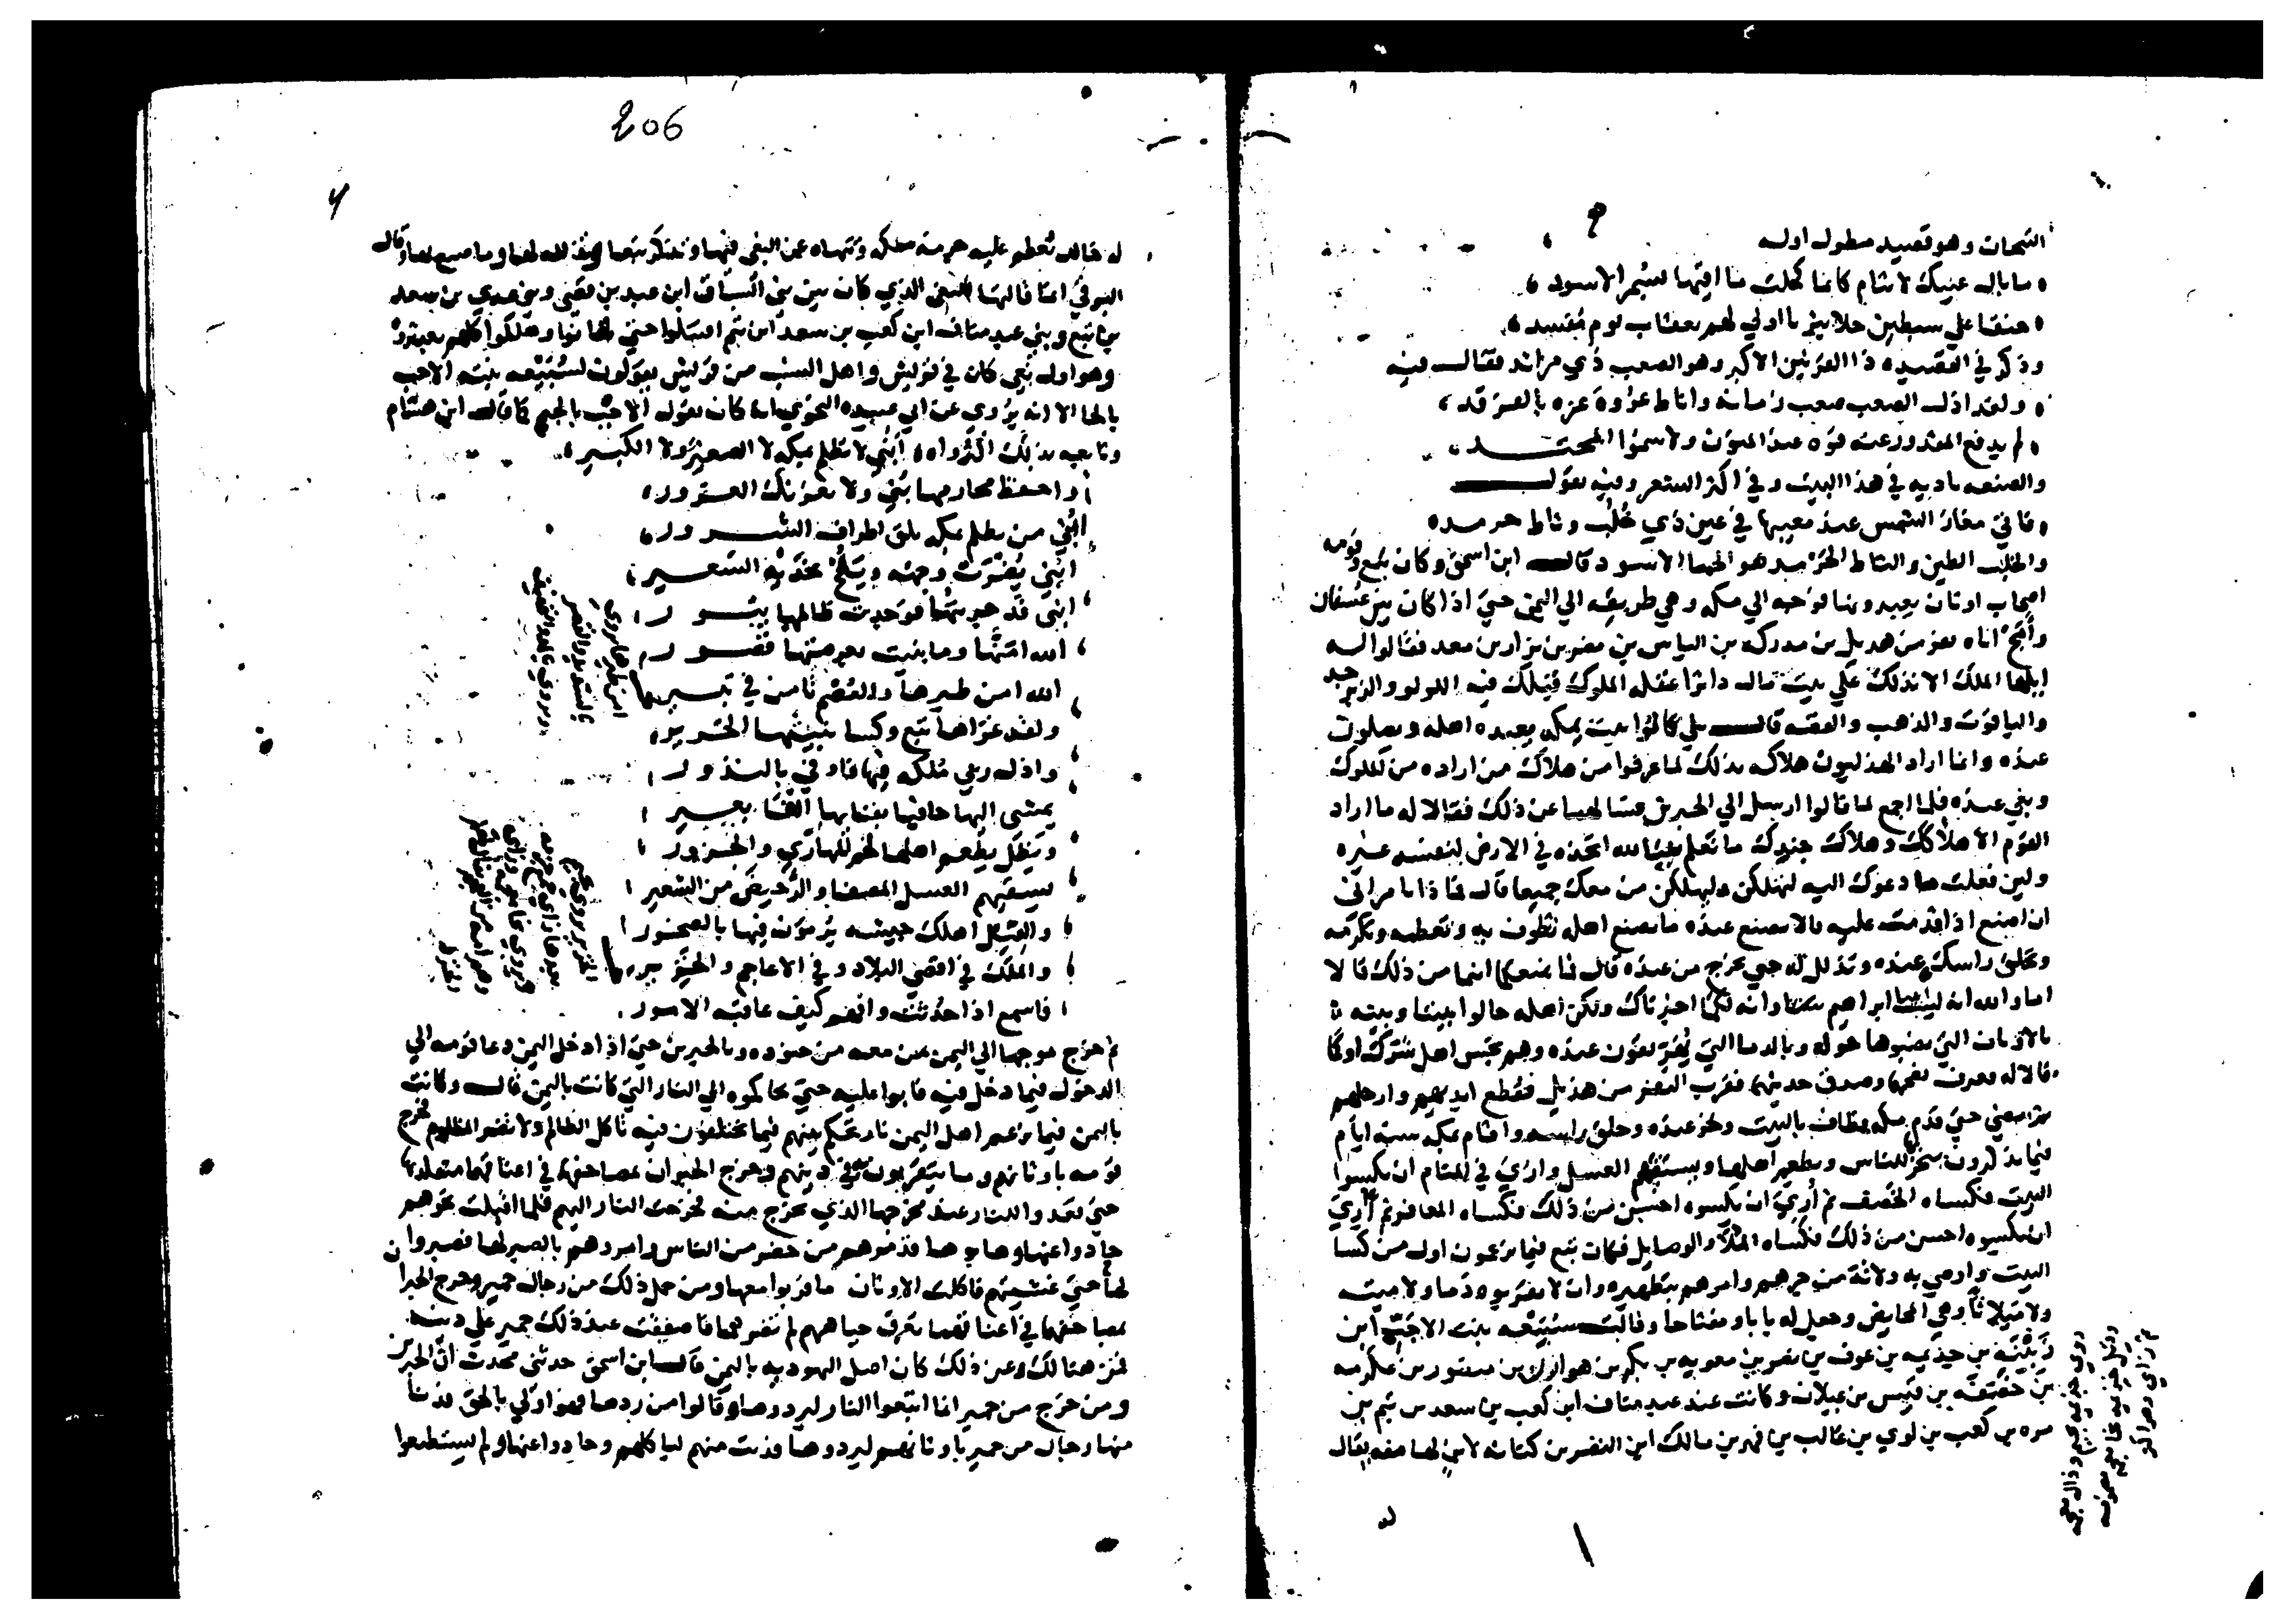 التيجان وهو قصيد مطول اوله
ما بال عينك لا تنام كانما كحلت مآقيها بسم الاسود
حنقا علي سبطين حلا يثربا اولي لهم بعقاب يوم مفسد
وذكر في القصيده ذا القرنين الاكبر وهو الصعب ذي مراثد فقال فيه
ولقد اذل الصعب صعب زمانه واناط عروة عزه بالفرقد
لم يدفع المقدور عنه قوه عند المنون ولا سمو المحتد
والصنعه باديه في هذا البيت وفي اكثر الشعر وفيه يقول
فاتي مغار الشمس عند مغيبها في عين ذي خلب وثاط حرمد
والخلب الطين والثاط الحرمد هو الحما الاسود قال ابن اسحق وكان تبع وقومه
اصحاب اوثان يعبدونها فوجه الي مكه وهي طريقه الي اليمن حتي اذا كان بين عسفان
وامج اتاه نفر من هذيل بن مدركه بن الياس بن مضر بن نزار بن معد فقالوا له
ايها الملك الا ندلك علي بيت مال داثر اغفلته الملوك قبلك فيه اللولو والزبرجد
والياقوت والذهب والفضه قال بلي قالوا بيت بمكه يعبده اهله ويصلون
عنده وانما اراد الهذليون هلاكه بذلك لما عرفوا من هلاك من اراده من الملوك
وبغي عنده فلما اجمع لما قالوا ارسل الي الحبرين فسالهما عن ذلك فقالا له ما اراد
القوم الا هلاكك وهلاك جندك ما نعلم بيتا لله اتخذه في الارض لنفسه غيره
ولين فعلت ما دعوك اليه لتهلكن وليهلكن من معك جميعا قال فماذا تامراني
ان اصنع اذا قدمت عليه قالا تصنع عنده ما يصنع اهله تطوف به وتعظمه وتكرمه
وتحلق راسك عنده وتذلل له حتي تخرج من عنده قال فما يمنعكما انتما من ذلك قالا
اما والله انه لبيت ابينا ابراهيم وانه لكما اخبرناك ولكن اهله حالوا بيننا وبينه
بالاوثان التي نصبوها حوله وبالدما التي يهريقون عنده وهم نجس اهل شرك او كما
قالا له فعرف نصحهما وصدق حديثهما فقرب النفر من هذيل فقطع ايديهم وارجلهم
ثم مضي حتي قدم مكه فطاف بالبيت ونحر عنده وحلق راسه واقام بمكه سته ايام
فيما يذكرون ينحر للناس ويطعم اهلها ويسقيهم العسل واري في المنام ان يكسوا
البيت فكساه الخصف ثم اري ان يكسوه احسن من ذلك فكساه المعافر ثم اري
ان يكسوه احسن من ذلك فكساه الملا والوصايل فكان تبع فيما يزعمون اول من كسا
البيت واوصي به ولاته من جرهم وامرهم بتطهيره وان لا يقربوه دما ولا ميته
ولا مئلاثا وهي المحايض وجعل له بابا ومفتاحا وقالت سبيعه بنت الاجب ابن
زبينه بن جذيمه بن عوف بن نصر بن معويه بن بكر بن هوازن بن منصور بن عكرمه
بن خصفه بن قيس بن عيلان وكانت عند عبد مناف ابن كعب بن سعد بن تيم بن
مره بن كعب بن لوي بن غالب بن فهر بن مالك ابن النضر بن كنانه لابن لها منه يقال
206
له خالد تعظم عليه حرمة مكه وتنهاه عن البغي فيها وتذكر تبعا وتذلله لها وما صنع بها وقال
البرقي انما قالتها للبغي الذي كان بين بني السباق ابن عبد بن قصي وبين عدي بن سعد
بن تيم وبني عبد مناف ابن كعب بن سعد ابن تيم اقتتلوا حتي تفانوا وهلكوا كلهم
وهو اول بغي كان في قريش واهل النسب من قريش يقولون لسبيعه بنت الاحب
بالحا الا انه يروي عن ابي عبيده النحوي انه كان يقول الاجب بالجيم كما قال ابن هشام
وتابعه بذلك اكثر الرواه ابني لا تظلم بمكه لا الصغير ولا الكبير
واحفظ محارمها بني ولا يغرنك الغرور
ابني من يظلم بمكه يلق اطراف الشرور
ابني يضرب وجهه ويلح بخديه السعير
ابني قد جربتها فوجدت ظالمها يبور
الله امنها وما بنيت بعرصتها قصور
الله امن طيرها والعصم تامن في ثبير
ولقد غزاها تبع وكسا بنيتها الحرير
واذل ربي ملكه فيها فاوفي بالنذور
يمشي اليها حافيا بفنايها الفا بعير
ويظل يطعم اهلها لحم المهاري والجزور
يسقيهم العسل المصفا والرحيض من الشعير
والفيل اهلك جيشه يرمون فيها بالصخور
والملك في اقصي البلاد وفي الاعاجم والخزير
فاسمع اذا حدثت وافهم كيف عاقبه الامور
ثم خرج موجها الي اليمن بمن معه من جنوده وبالحبرين حتي اذا دخل اليمن دعا قومه الي
الدخول فيما دخل فيه فابوا عليه حتي يحاكموه الي النار التي كانت باليمن قال وكانت
باليمن فيما يزعم اهل اليمن نار تحكم بينهم فيما يختلفون فيه تاكل الظالم ولا تضر المظلوم فخرج
قومه باوثانهم وما يتقربون به في دينهم وخرج الحبران بمصاحفهما في اعناقهما متقلديها
حتي قعدوا للنار عند مخرجها الذي تخرج منه فخرجت النار اليهم فلما اقبلت نحوهم
حادوا عنها وهابوها فذمرهم من حضر من الناس وامروهم بالصبر لها فصبروا
حتي غشيتهم فاكلت الاوثان وما قربوا معها ومن حمل ذلك من رجال حمير وخرج الحبران
بمصاحفهما في اعناقهما تعرق جباههم لم تضرهما فاصفقت عند ذلك حمير علي دينه
فمن هنالك وعن ذلك كان اصل اليهوديه باليمن قال ابن اسحق حدثني محدث ان الحبرين
ومن خرج من حمير انما اتبعوا النار ليردوها وقالوا من ردها فهو اولي بالحق فدنا
منها رجال من حمير باوثانهم ليردوها فدنت منهم لتاكلهم وحادوا عنها ولم يستطيعوا